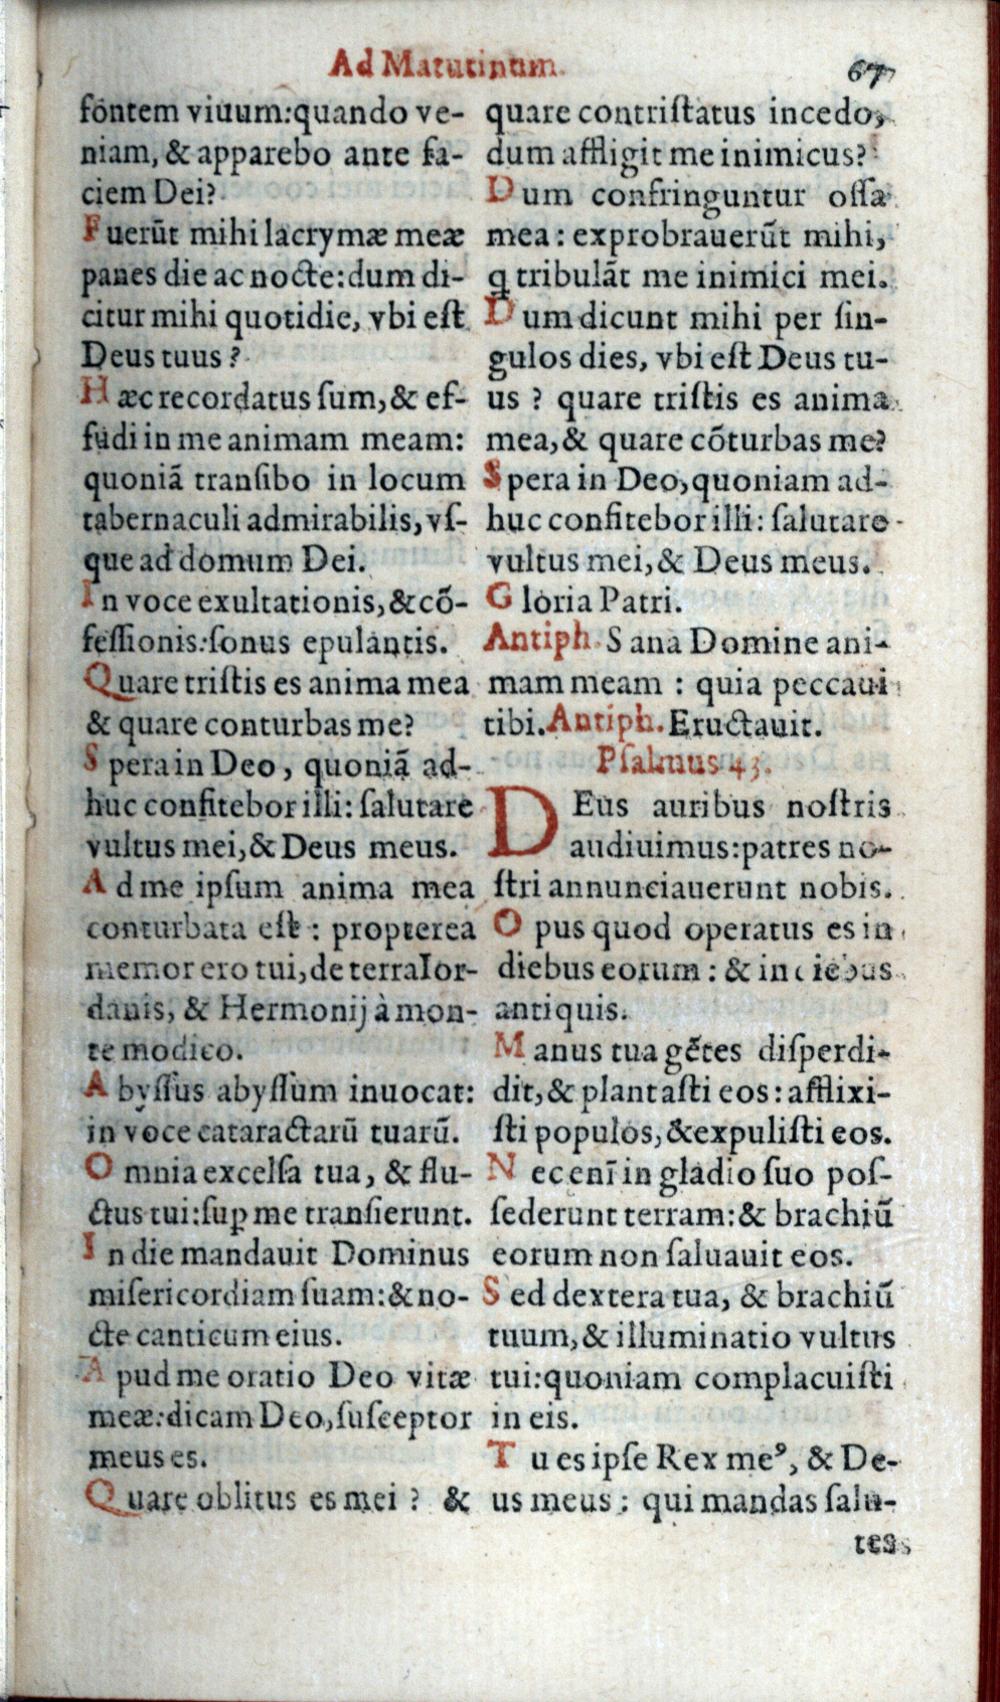 Ad Matutinum.
67
fontem viuum:quando ve-
niam, & apparebo ante fa-
ciem Dei?
Fuerũt mihi lacrymæ meæ
panes die ac nocte:dum di-
citur mihi quotidie, vbi eſt
Deus tuus ?
Hæc recordatus ſum,& ef-
fudi in me animam meam:
quoniã tranſibo in locum
tabernaculi admirabilis, vſ-
que ad domum Dei.
In voce exultationis,& cõ-
feſſionis:ſonus epulantis.
Quare triſtis es anima mea
& quare conturbas me?
Spera in Deo, quoniã ad-
huc confitebor illi: ſalutare
vultus mei,& Deus meus.
Ad me ipſum anima mea
conturbata eſt : propterea
memor ero tui,de terra Ior-
danis, & Hermonij à mon-
te modico.
Abyſſus abyſſum inuocat:
in voce cataractarũ tuarũ.
Omnia excelſa tua, & flu-
ctus tui:ſuꝑ me tranſierunt.
In die mandauit Dominus
miſericordiam ſuam:& no-
cte canticum eius.
Apud me oratio Deo vitæ
meæ:dicam Deo,ſuſceptor
meus es.
Quare oblitus es mei ? &
quare contriſtatus incedo,
dum affligit me inimicus?
Dum confringuntur oſſa
mea : exprobrauerũt mihi,
ꝗ tribulãt me inimici mei.
Dum dicunt mihi per ſin-
gulos dies, vbi eſt Deus tu-
us ? quare triſtis es anima
mea,& quare cõturbas me?
Spera in Deo,quoniam ad-
huc confitebor illi: ſalutare
vultus mei,& Deus meus.
Gloria Patri.
Antiph. Sana Domine ani-
mam meam : quia peccaui
tibi. Antiph. Eructauit.
Pſalmus 43.
DEus auribus noſtris
audiuimus:patres no-
ſtri annunciauerunt nobis.
Opus quod operatus es in
diebus eorum : & in diebus
antiquis.
Manus tua gẽtes diſperdi-
dit,& plantaſti eos: afflixi-
ſti populos,& expuliſti eos.
Nec enĩ in gladio ſuo poſ-
ſederunt terram:& brachiũ
eorum non ſaluauit eos.
Sed dextera tua, & brachiũ
tuum,& illuminatio vultus
tui:quoniam complacuiſti
in eis.
Tu es ipſe Rex meꝰ, & De-
us meus : qui mandas ſalu-
tes